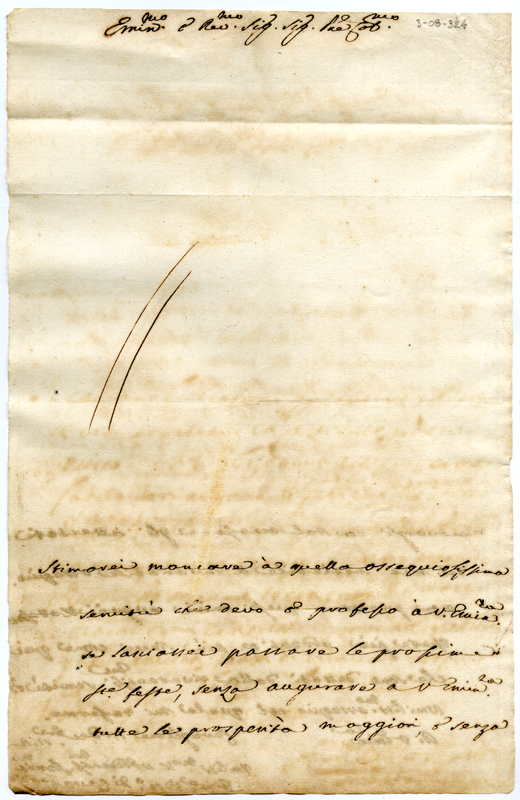 Emin.mo e Rev.mo Sig. Sig. P.ne Col.mo
3-08-324
Stimarei mancare à quella ossequiosissima
servitù che devo e professo à V. Emin.za
se lasciassei passare le prossime
S.te feste, senza augurare a V Emin.za
tutte le prosperità maggiori, e senza